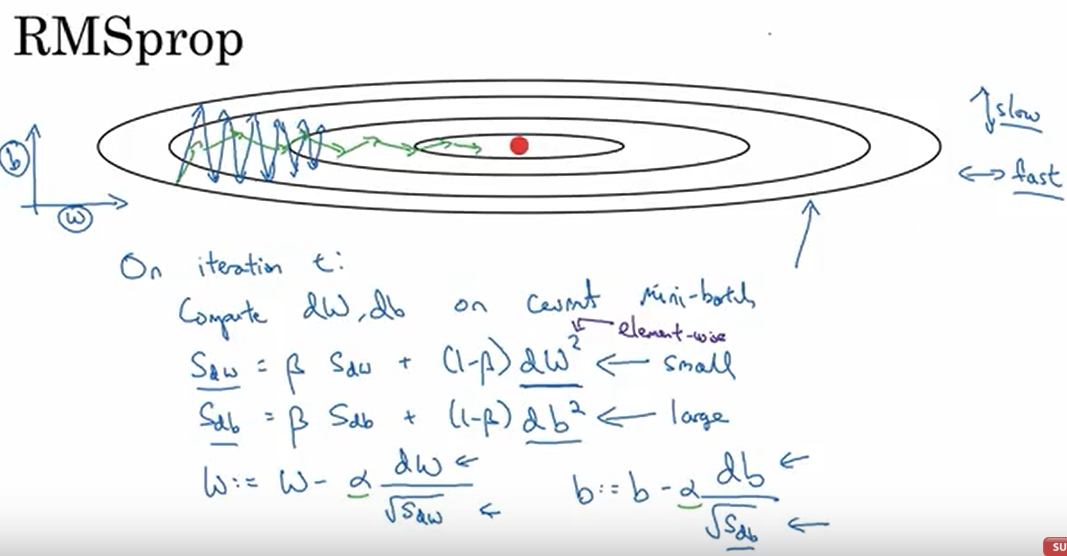 RMSprop
slow
b
fast
w
On iteration t:
Compute dW, db on current mini-batch
element-wise
Sdw = β Sdw + (1-β) dW² ← small
Sdb = β Sdb + (1-β) db² ← large
W := W - α dW/√Sdw ← b := b - α db/√Sdb ←
SU